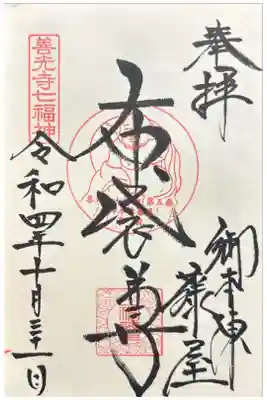 奉拝
布袋尊
御本陳藤屋
善光寺七福神
令和四年十月三十一日